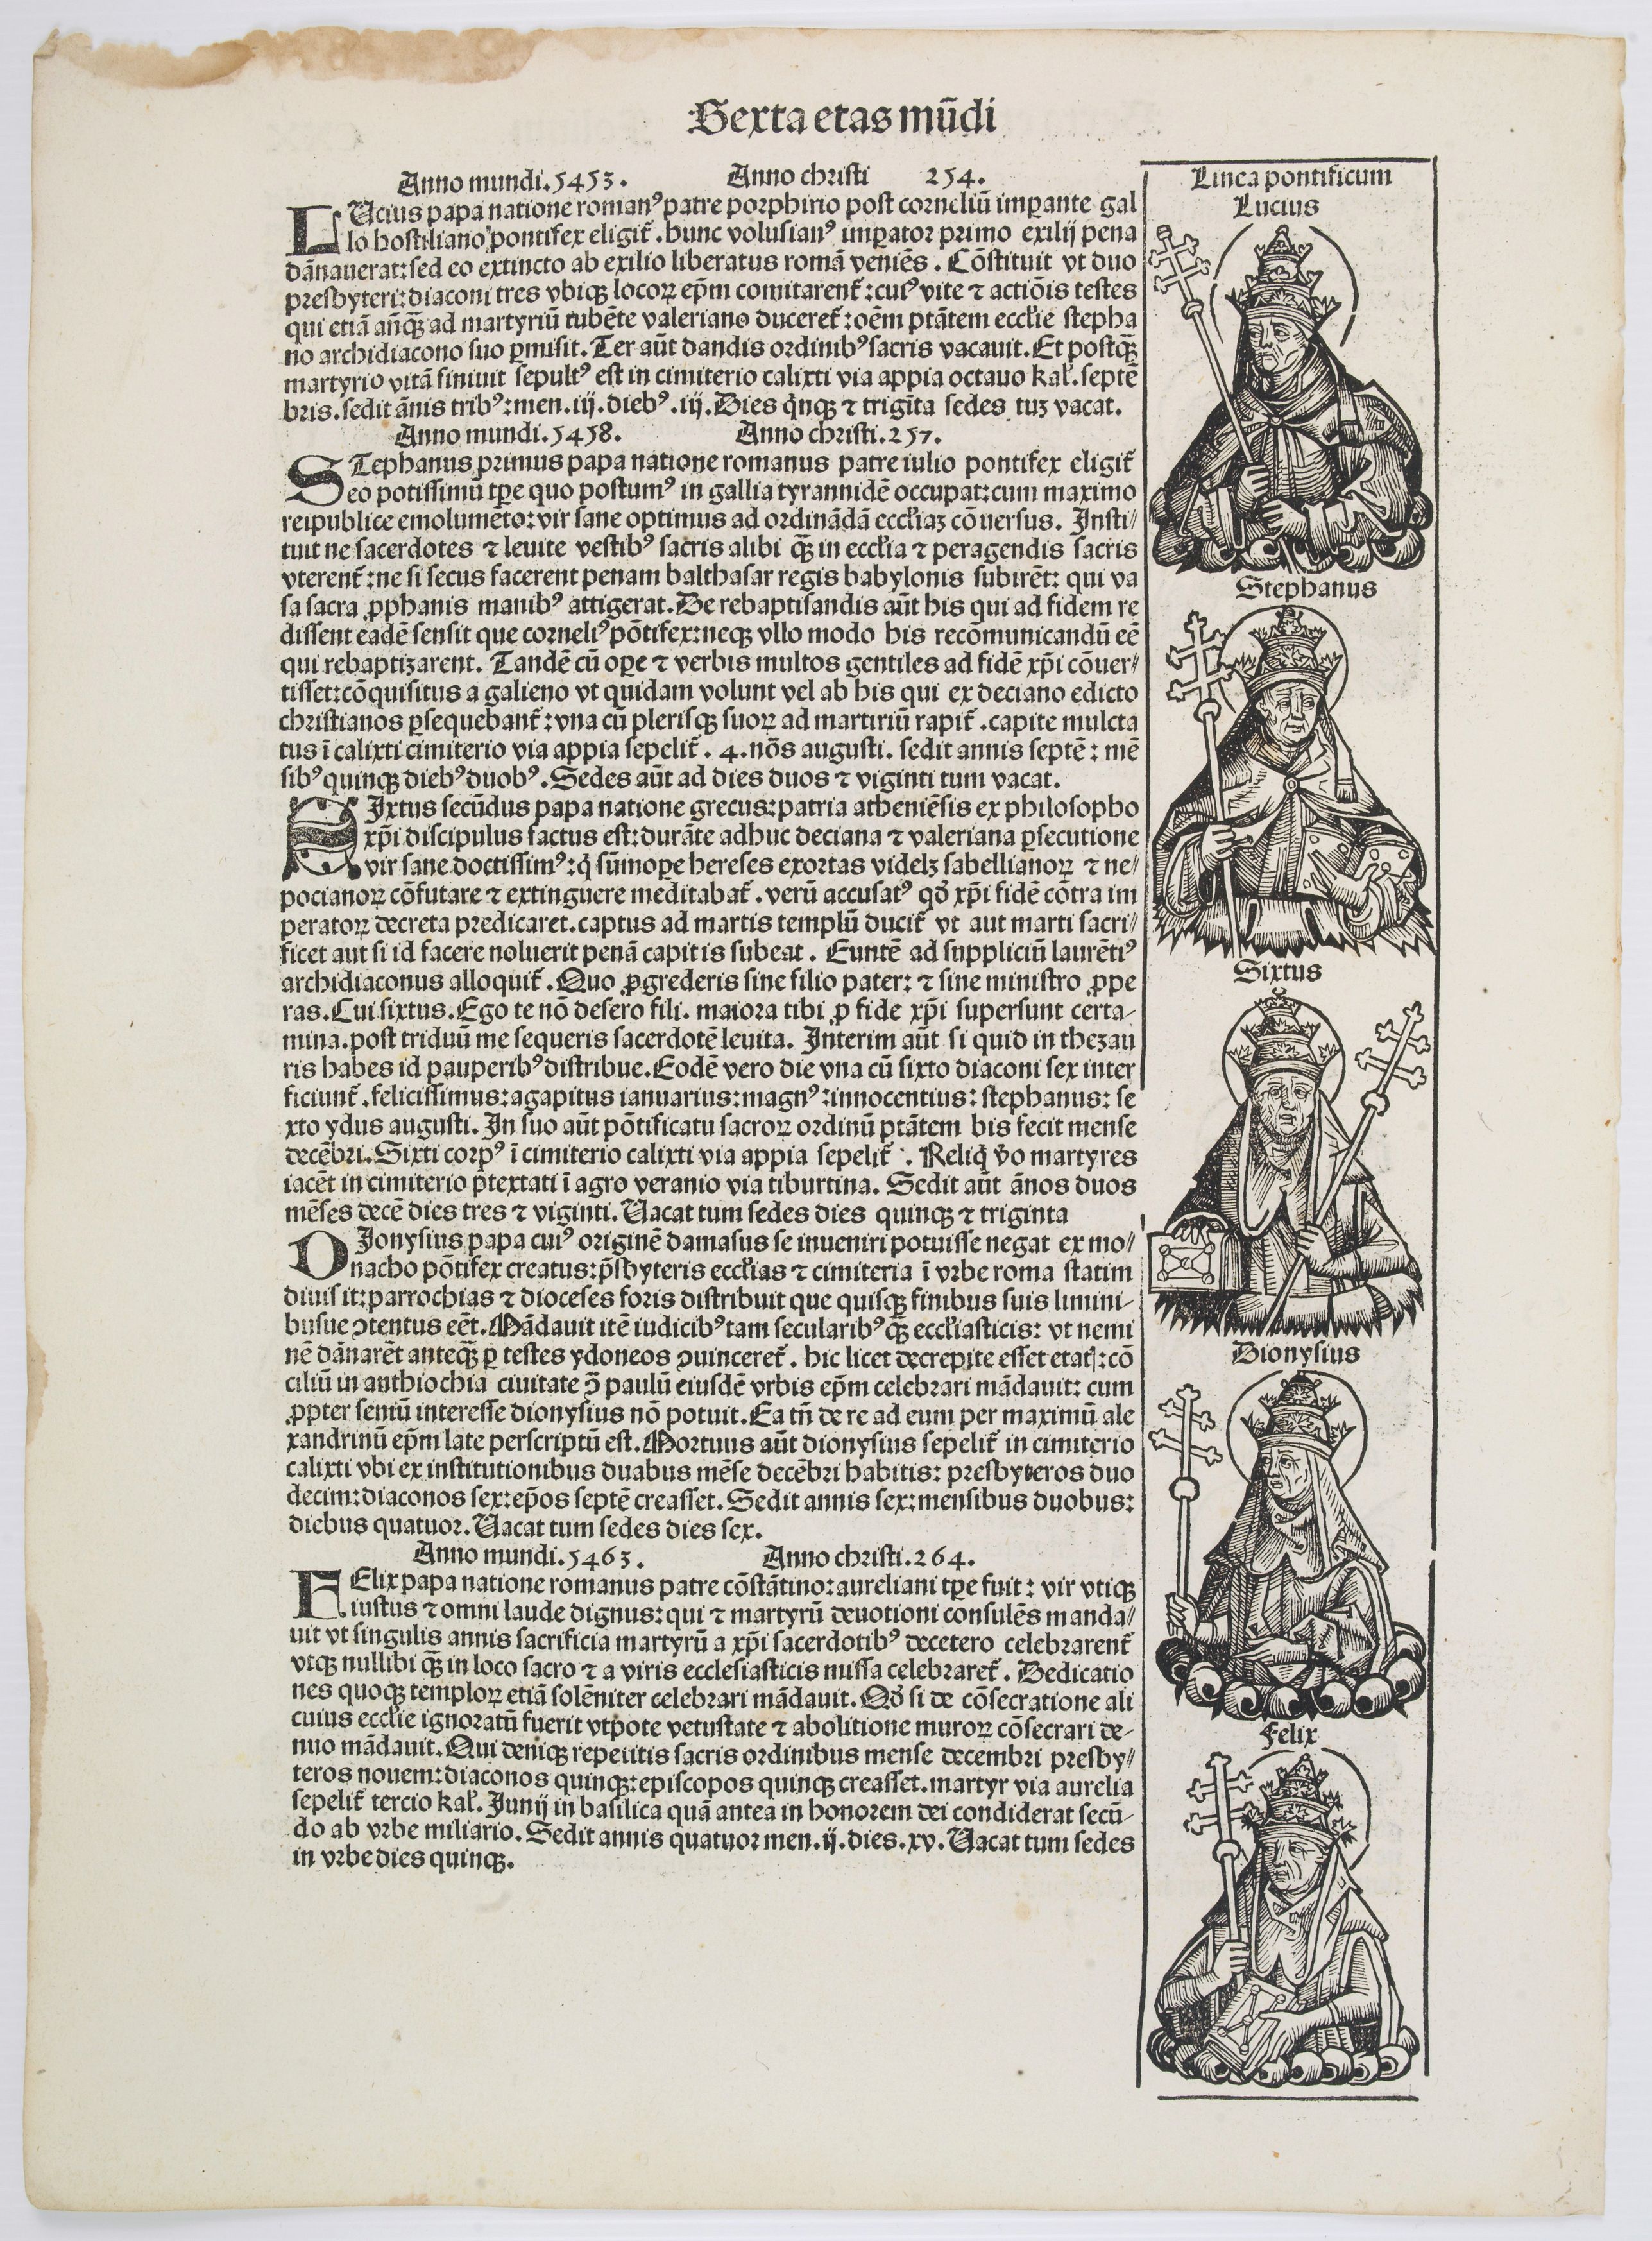 Sexta etas mūdi
Anno mundi.5453. Anno christi 254.
LUcius papa natione romanꝰ patre porphirio post corneliū imꝑante gal
lo hostiliano pontifex eligit̄. hunc volusianꝰ imꝑator primo exilij pena
dānauerat:sed eo extincto ab exilio liberatus romā veniēs. Cōstituit vt duo
presbyteri:diaconi tres vbiqꝫ locoꝝ ep̄m comitarent̄:cuiꝰ vite ⁊ actiōis testes
qui etiā an̄qꝫ̄ ad martyriū iubēte valeriano duceret̄:oēm ptātem eccl̄ie stepha
no archidiacono suo ꝑmisit. Ter aūt dandis ordinibꝰ sacris vacauit. Et postqꝫ̄
martyrio vitā finiuit sepultꝰ est in cimiterio calixti via appia octauo kal̄. septē
bris. sedit ānis tribꝰ:men.iij.diebꝰ.iij. Dies q̇nqꝫ ⁊ trigīta sedes tuꝫ vacat.
Anno mundi.5458. Anno christi.257.
STephanus primus papa natione romanus patre iulio pontifex eligit̄
eo potissimū tꝑe quo postumꝰ in gallia tyrannidē occupat:cum maximo
reipublice emolumēto:vir sane optimus ad ordinādā eccl̄iaꝫ cōuersus. Insti⸗
tuit ne sacerdotes ⁊ leuite vestibꝰ sacris alibi qꝫ̄ in eccl̄ia ⁊ peragendis sacris
vterent̄:ne si secus facerent penam balthasar regis babylonis subirēt: qui va
sa sacra ꝓphanis manibꝰ attigerat. De rebaptisandis aūt his qui ad fidem re
dissent eadē sensit que corneliꝰ pōtifex:neqꝫ vllo modo his recōmunicandū eē
qui rebaptizarent. Tandē cū oꝑe ⁊ verbis multos gentiles ad fidē xp̄i cōuer⸗
tisset:cōquisitus a galieno vt quidam volunt vel ab his qui ex deciano edicto
christianos ꝑsequebant̄:vna cū plerisqꝫ suoꝝ ad martiriū rapit̄. capite mulcta
tus ī calixti cimiterio via appia sepelit̄. 4. nōs augusti. sedit annis septē: mē
sibꝰ quinqꝫ diebꝰ duobꝰ. Sedes aūt ad dies duos ⁊ viginti tum vacat.
SIxtus secūdus papa natione grecus:patria atheniēsis ex philosopho
xp̄i discipulus factus est:durāte adhuc deciana ⁊ valeriana ꝑsecutione
vir sane doctissimꝰ:q̇ sūmoꝑe hereses exortas videlꝫ sabellianoꝝ ⁊ ne⸗
pocianoꝝ cōfutare ⁊ extinguere meditabat̄. verū accusatꝰ qd̄ xp̄i fidē cōtra im
peratoꝝ decreta predicaret. captus ad martis templū ducit̄ vt aut marti sacri⸗
ficet aut si id facere noluerit penā capitis subeat. Euntē ad suppliciū laurētiꝰ
archidiaconus alloquit̄. Quo ꝓgrederis sine filio pater: ⁊ sine ministro ꝓpe
ras. Cui sixtus. Ego te nō desero fili. maiora tibi ꝓ fide xp̄i supersunt certa-
mina. post triduū me sequeris sacerdotē leuita. Interim aūt si quid in thezau
ris habes id pauperibꝰ distribue. Eodē vero die vna cū sixto diaconi sex inter
ficiunt̄. felicissimus:agapitus ianuarius:magnꝰ:innocentius:stephanus: se
xto ydus augusti. In suo aūt pōtificatu sacroꝝ ordinū ptātem bis fecit mense
decēbri. Sixti corpꝰ ī cimiterio calixti via appia sepelit̄. Reliq̇ v̄o martyres
iacēt in cimiterio ptextati ī agro veranio via tiburtina. Sedit aūt ānos duos
mēses decē dies tres ⁊ viginti. Uacat tum sedes dies quinqꝫ ⁊ triginta
DIonysius papa cuiꝰ originē damasus se inueniri potuisse negat ex mo⸗
nacho pōtifex creatus:p̄sbyteris eccl̄ias ⁊ cimiteria ī vrbe roma statim
diuisit:parrochias ⁊ dioceses foris distribuit que quisqꝫ finibus suis limini-
busue ꝯtentus eēt. Mādauit itē iudicibꝰ tam secularibꝰ qꝫ̄ eccl̄iasticis: vt nemi
nē dānarēt anteqꝫ̄ ꝑ testes ydoneos ꝯuinceret̄. hic licet decrepite esset etatꝭ:cō
ciliū in anthiochia ciuitate ꝯ̄ paulū eiusdē vrbis ep̄m celebrari mādauit: cum
ꝓpter seniū interesse dionysius nō potuit. Ea tn̄ de re ad eum per maximū ale
xandrinū ep̄m late perscriptū est. Mortuus aūt dionysius sepelit̄ in cimiterio
calixti vbi ex institutionibus duabus mēse decēbri habitis: presbyteros duo
decim:diaconos sex:ep̄os septē creasset. Sedit annis sex:mensibus duobus:
diebus quatuor. Uacat tum sedes dies sex.
Anno mundi.5463. Anno christi.264.
FElix papa natione romanus patre cōstātino:aureliani tꝑe fuit: vir vtiqꝫ
iustus ⁊ omni laude dignus:qui ⁊ martyrū deuotioni consulēs manda⸗
uit vt singulis annis sacrificia martyrū a xp̄i sacerdotibꝰ decetero celebrarent̄
vtqꝫ nullibi qꝫ̄ in loco sacro ⁊ a viris ecclesiasticis missa celebraret̄. Dedicatio
nes quoqꝫ temploꝝ etiā solēniter celebrari mādauit. Qd̄ si de cōsecratione ali
cuius eccl̄ie ignoratū fuerit vtpote vetustate ⁊ abolitione muroꝝ cōsecrari de-
nuo mādauit. Qui deniqꝫ repetitis sacris ordinibus mense decembri presby⸗
teros nouem:diaconos quinqꝫ:episcopos quinqꝫ creasset. martyr via aurelia
sepelit̄ tercio kal̄. Junij in basilica quā antea in honorem dei condiderat secū-
do ab vrbe miliario. Sedit annis quatuor men.ij.dies.xv. Uacat tum sedes
in vrbe dies quinqꝫ.
Linea pontificum
Lucius
Stephanus
Sixtus
Dionysius
Felix